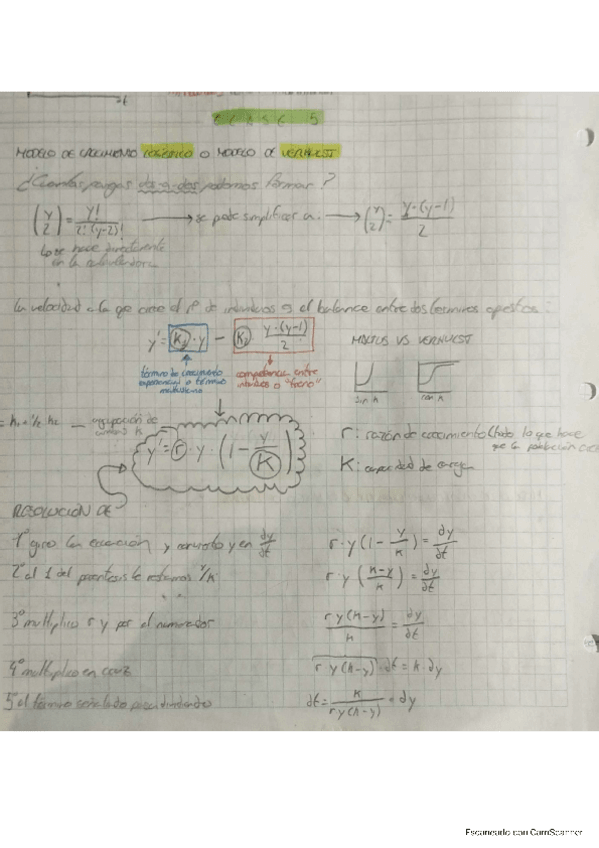 CLASE 5
MODELO DE CRECIMIENTO LOGÍSTICO O MODELO DE VERHULST
¿Cuántas parejas de a dos podemos formar?
(y 2) = y! / 2!·(y-2)! → se puede simplificar a: → (y 2) = y·(y-1) / 2
Lo se hace directamente
en la calculadora
La velocidad a la que crece el nº de individuos es el balance entre dos términos opuestos:
y' = k₁·y − k₂ y·(y-1) / 2
MALTUS VS VERHULST
término de crecimiento
exponencial o término
malthusiano
competencia entre
individuos o "freno"
sin K
con K
= k₁ + 1/2 k₂ — agrupación de
y' = r·y·(1 − y/K)
r: razón de crecimiento (todo lo que hace
que la población crec
K: capacidad de carga
RESOLUCIÓN DE
1º giro la ecuación y convierto y en dy/dt
r·y(1 − y/k) = dy/dt
2º al 1 del paréntesis le restamos y/k
r·y(k-y / k) = dy/dt
3º multiplico r y por el numerador
r y(k-y) / k = dy/dt
4º multiplico en cruz
r y(k-y)·dt = k·dy
5º el término señalado pasa dividiendo
dt = k / r y(k-y) · dy
Escaneado con CamScanner